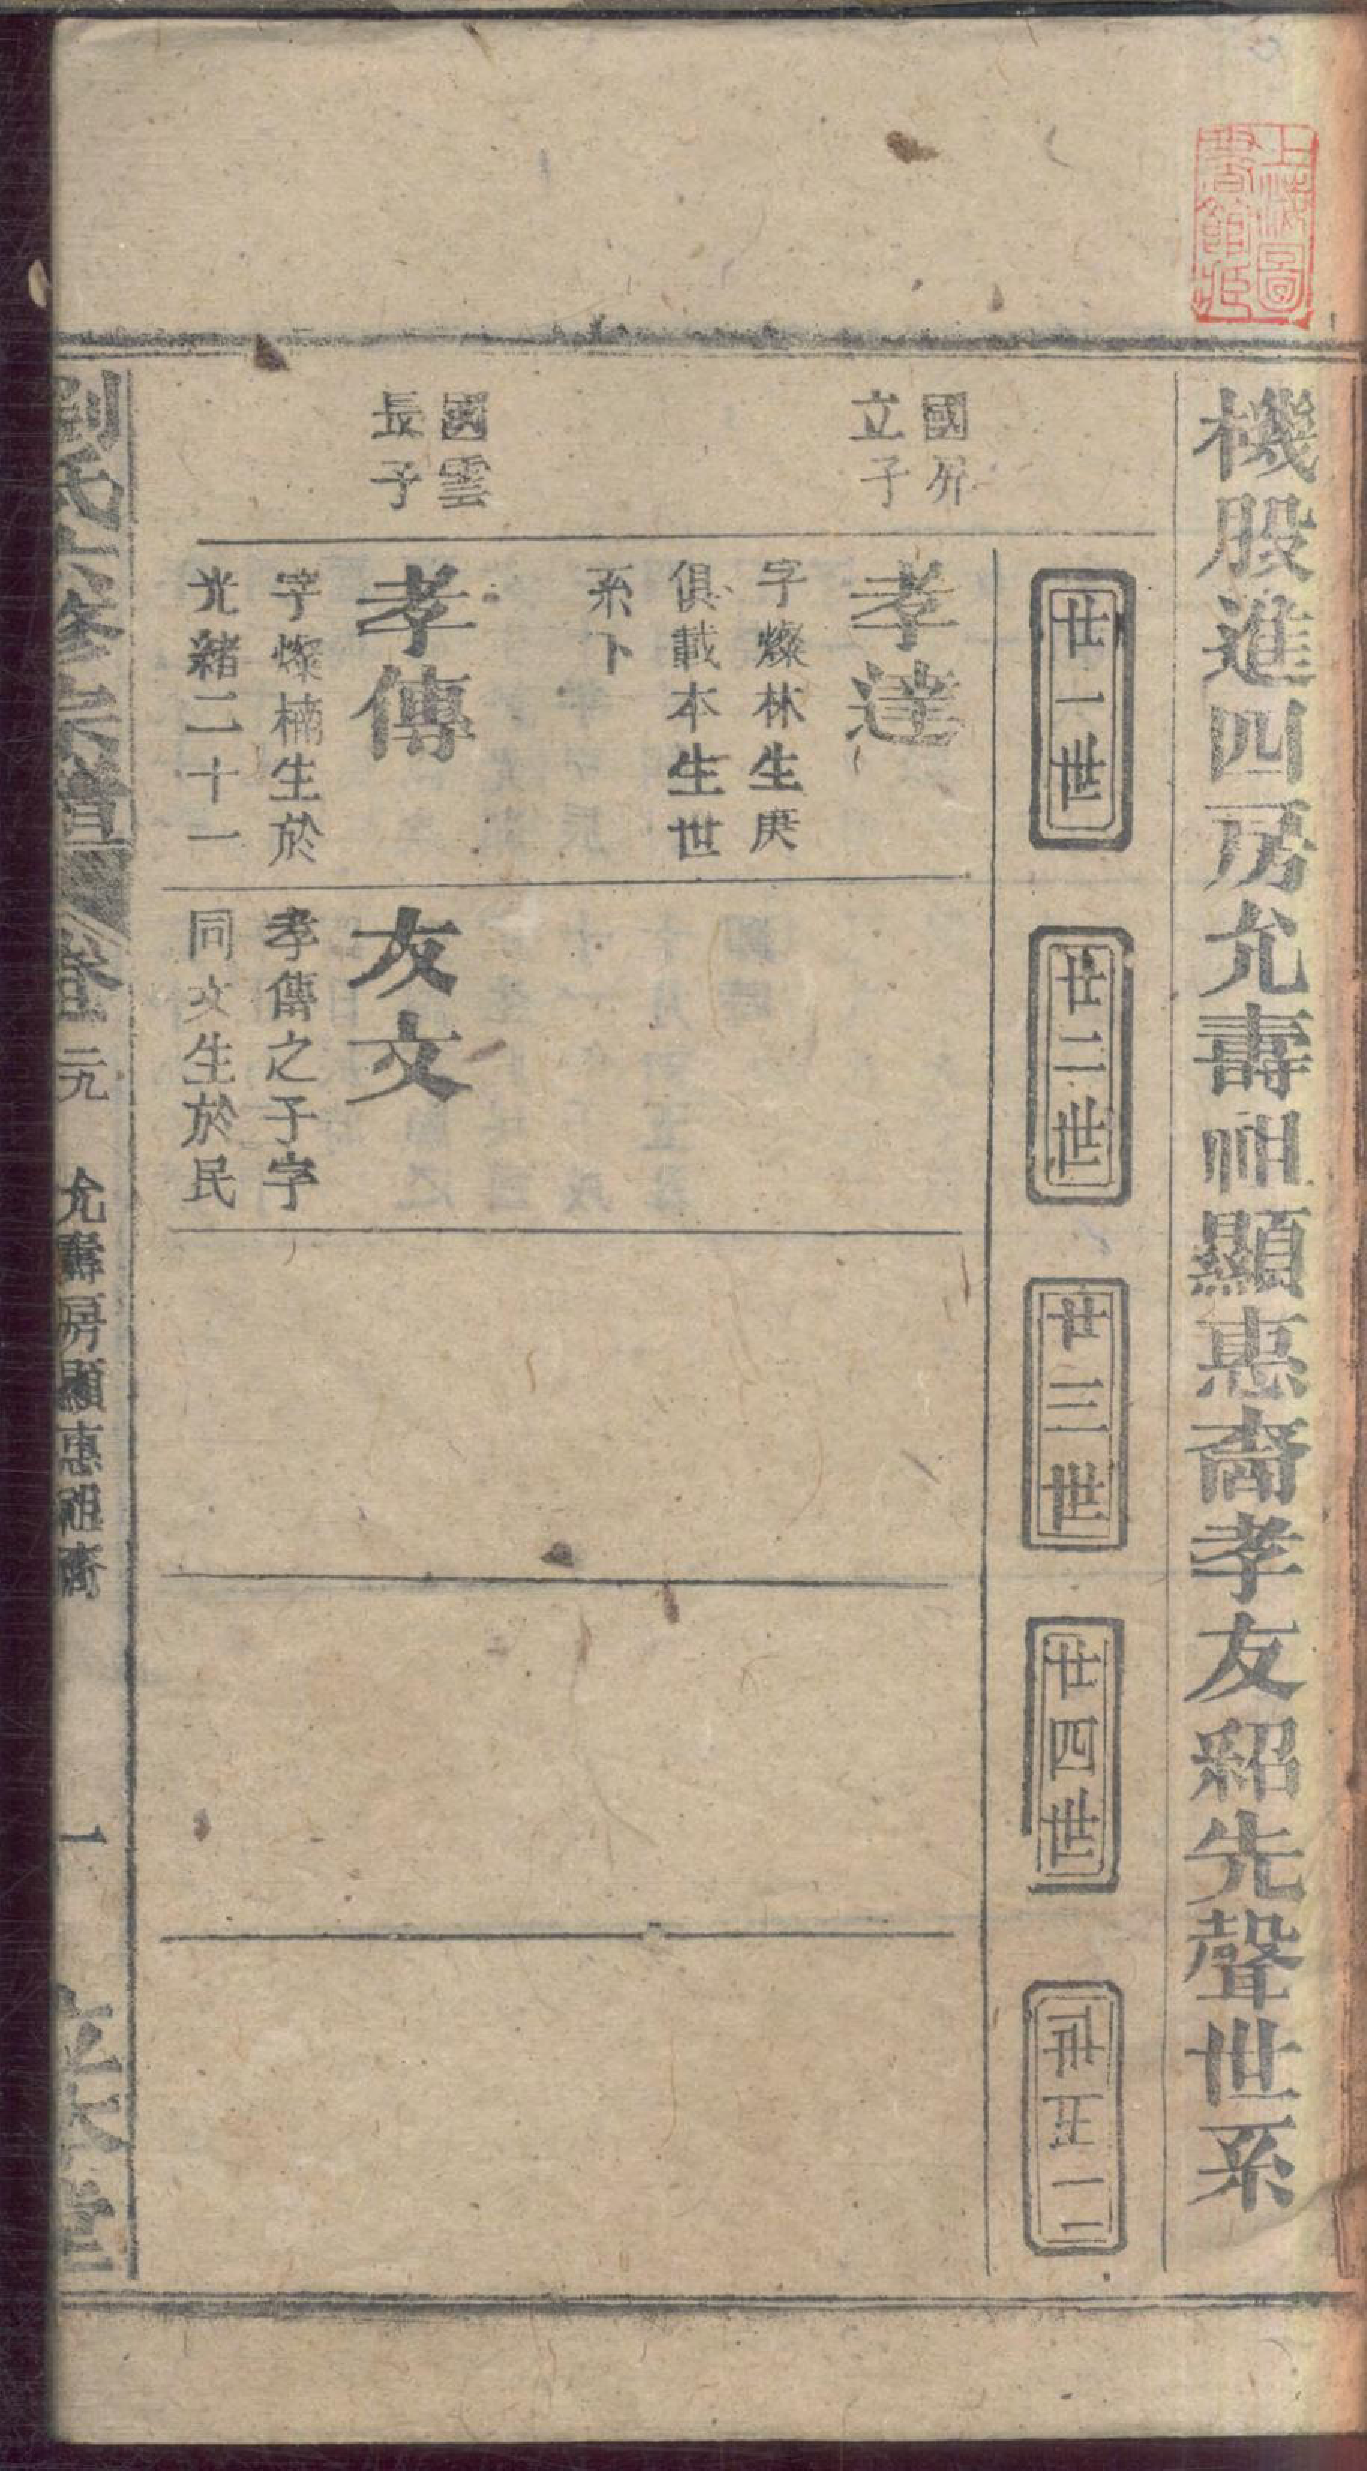 上海圖
書館藏
機股進四房允壽祖顯惠裔孝友紹先聲世系
廿一世
廿二世
廿三世
廿四世
國屏
立子
孝達
字燦林生庚
俱載本生世
系卜
國雲
長子
孝傳
字燦楠生於
光緒二十一
友文
孝傳之子字
同文生於民
劉氏六修宗譜
卷 二九
允壽房顯惠祖裔
一